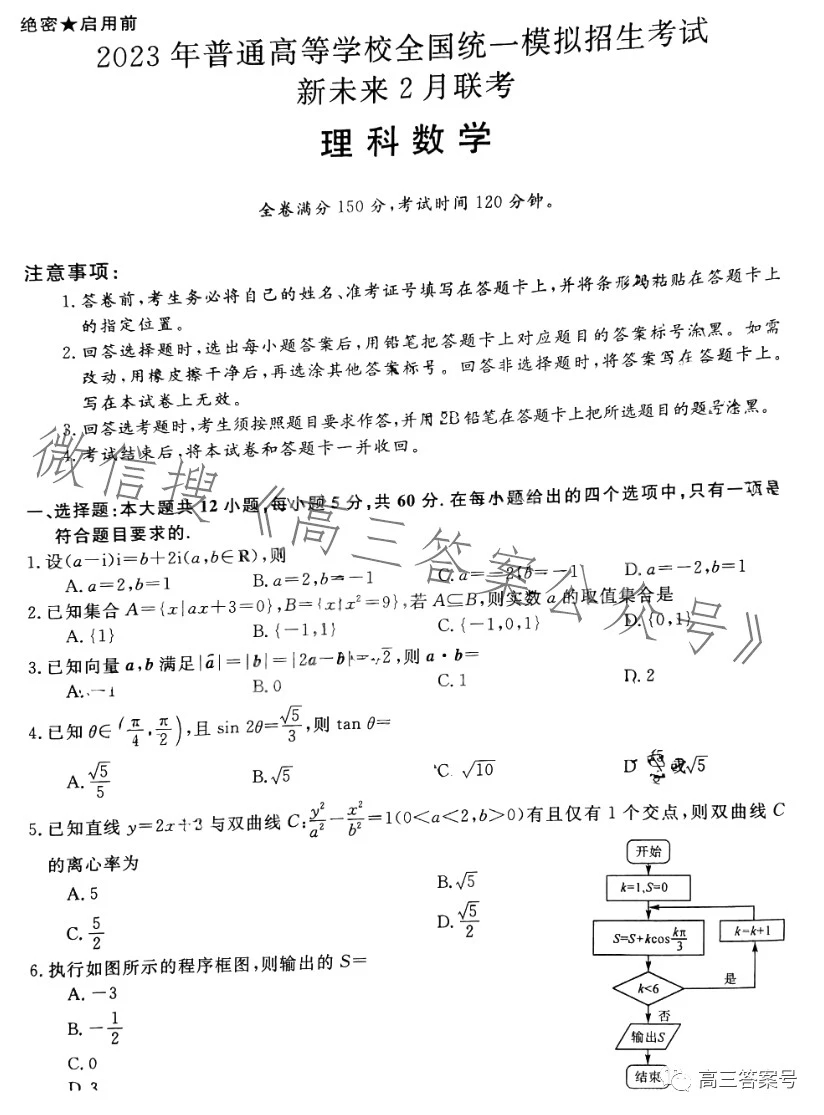 绝密★启用前
2023年普通高等学校全国统一模拟招生考试
新未来2月联考
理科数学
全卷满分150分,考试时间120分钟。
注意事项:
1.答卷前,考生务必将自己的姓名、准考证号填写在答题卡上,并将条形码粘贴在答题卡上
的指定位置。
2.回答选择题时,选出每小题答案后,用铅笔把答题卡上对应题目的答案标号涂黑。如需
改动,用橡皮擦干净后,再选涂其他答案标号。回答非选择题时,将答案写在答题卡上。
写在本试卷上无效。
3.回答选考题时,考生须按照题目要求作答,并用2B铅笔在答题卡上把所选题目的题号涂黑。
4.考试结束后,将本试卷和答题卡一并收回。
微信搜《高三答案公众号》
一、选择题:本大题共12小题,每小题5分,共60分.在每小题给出的四个选项中,只有一项是
符合题目要求的.
1.设(a-i)i=b+2i(a,b∈R),则
A.a=2,b=1 B.a=2,b=-1 C.a=-2,b=-1 D.a=-2,b=1
2.已知集合A={x|ax+3=0},B={x|x²=9},若A⊆B,则实数a的取值集合是
A.{1} B.{-1,1} C.{-1,0,1} D.{0,1}
3.已知向量a,b满足|a|=|b|=|2a-b|= 2,则a·b=
A. -1 B.0 C.1 D.2
4.已知θ∈(π/4,π/2),且sin 2θ=√5/3,则tan θ=
A.√5/5 B.√5 C.√10 D. 或√5
5.已知直线y=2x+3与双曲线C:y²/a²-x²/b²=1(0<a<2,b>0)有且仅有1个交点,则双曲线C
的离心率为
A.5 B.√5
C.5/2 D.√5/2
6.执行如图所示的程序框图,则输出的S=
A.-3
B.-1/2
C.0
D.3
开始
k=1,S=0
S=S+kcos kπ/3
k=k+1
k<6
是
否
输出S
结束
高三答案号